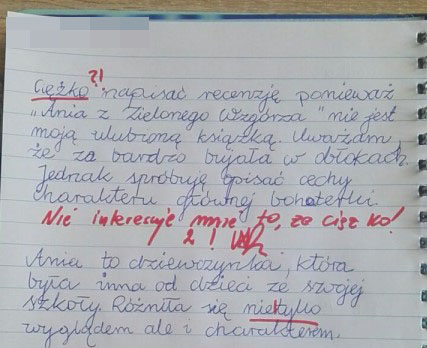 ?!
Ciężko napisać recenzję ponieważ
„Ania z Zielonego Wzgórza" nie jest
moją ulubioną książką. Uważam,
że za bardzo bujała w obłokach.
Jednak spróbuję opisać cechy
charakteru głównej bohaterki.
Nie interesuje mnie to, że ciężko!
2!
Ania to dziewczynka, która
była inna od dzieci ze swojej
szkoły. Różniła się nietylko
wyglądem ale i charakterem.